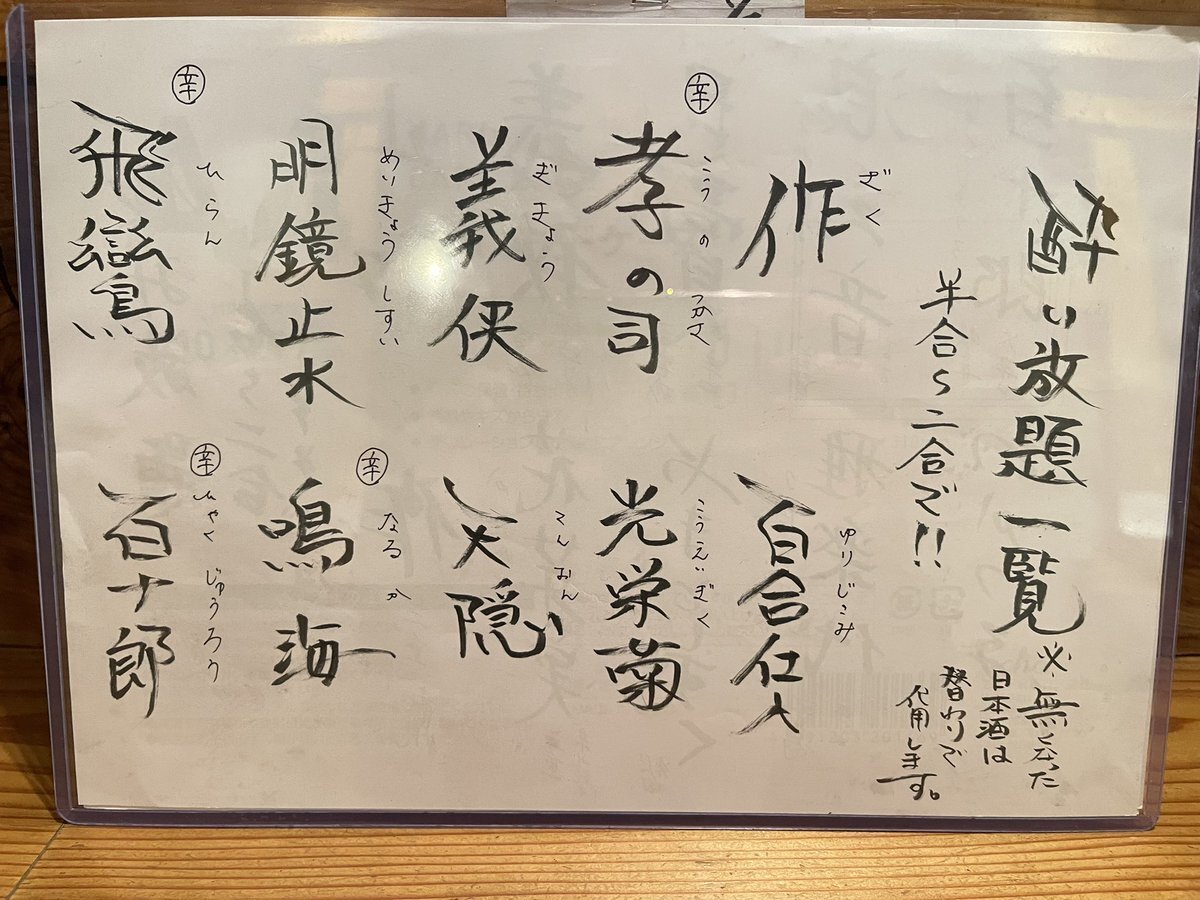 酔い放題一覧
※無くなった
日本酒は
替わりで
代用します。
半合〜二合で!!
ざく
作
辛
こうのつかさ
孝の司
ぎきょう
義侠
めいきょうしすい
明鏡止水
辛
ひらん
飛鸞
ゆりじんみ
百合仁人
こうえいぎく
光栄菊
てんおん
天隠
辛
なるか
鳴海
辛
ひゃくじゅうろう
百十郎